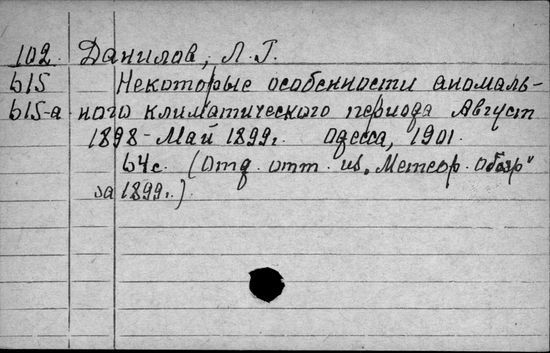 102. Данилов, Л. Г.
615 Некоторые особенности аномаль-
615-а ного климатического периода Август
1898 - Май 1899г. Одесса, 1901.
64с. (Отд. отт. из „Метеор. обозр"
за 1899г.)